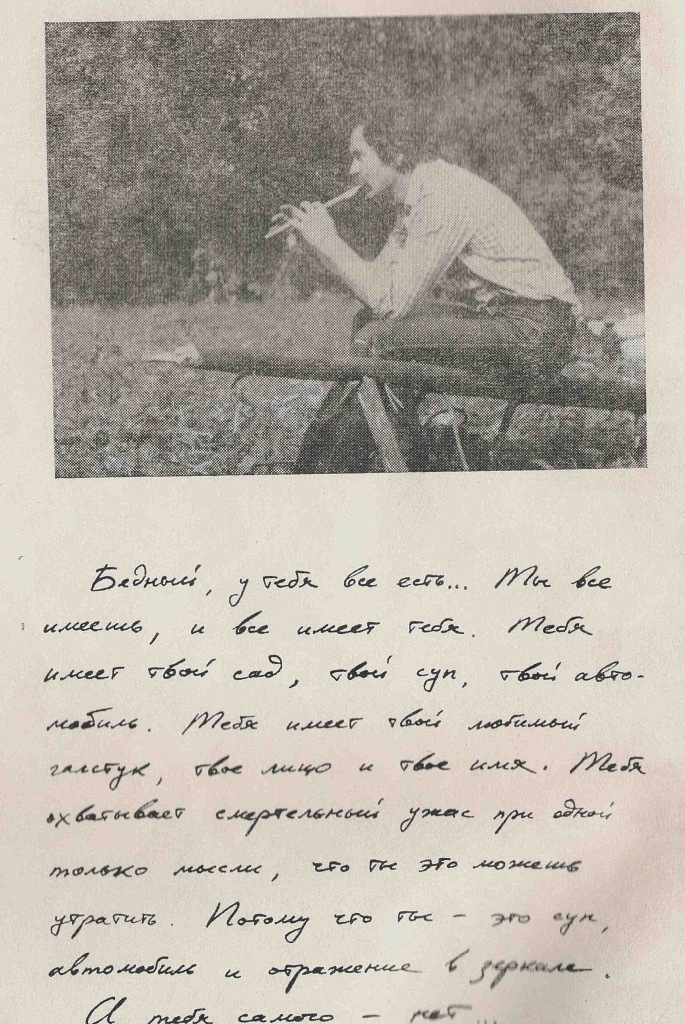 Бедный, у тебя все есть... Ты все
имеешь, и все имеет тебя. Тебя
имеет твой сад, твой суп, твой авто-
мобиль. Тебя имеет твой любимый
галстук, твое лицо и твое имя. Тебя
охватывает смертельный ужас при одной
только мысли, что ты это можешь
утратить. Потому что ты – это суп,
автомобиль и отражение в зеркале.
А тебя самого – нет...